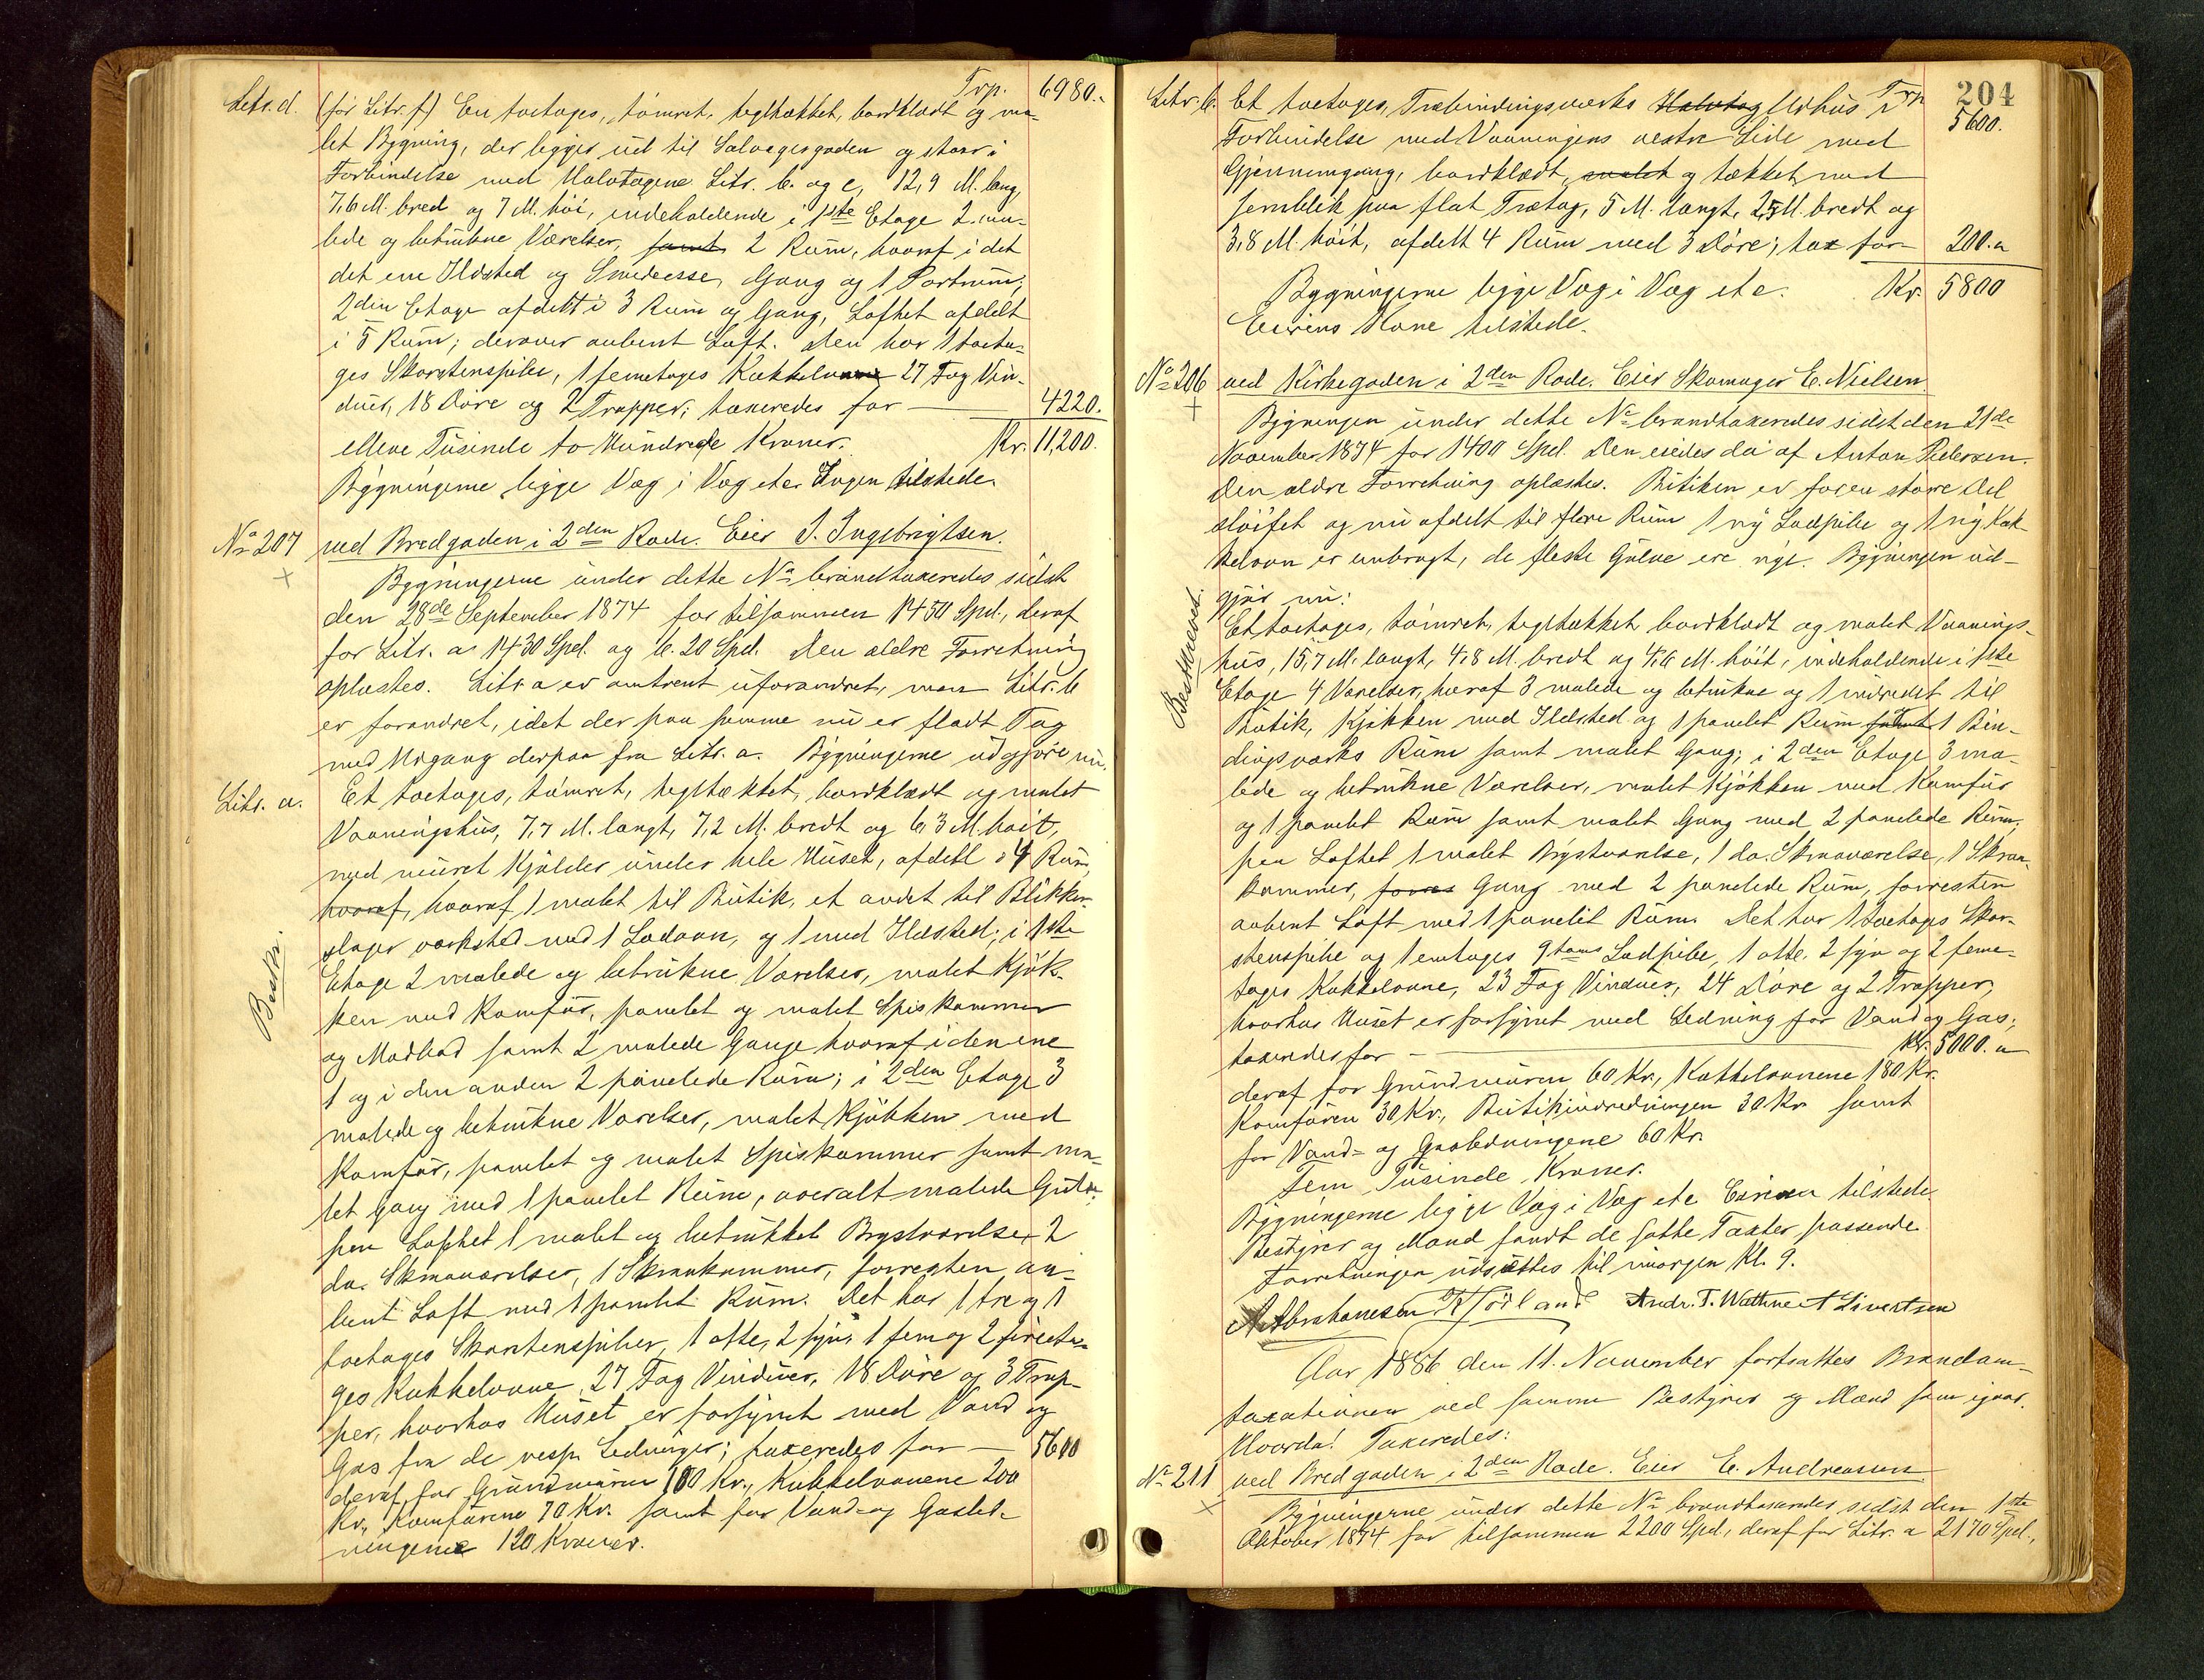 Trp. 6980.
Litr. d. (før Litr. f) En toetages, tømret, teglhækket, bordklædt og ma-
let Bygning, der ligger ud til Salvagergaden og staar i
Forbindelse med Halvtagene Litr. b. og e, 12,9 M. lang,
7,6 M. bred og 7 M. høi, indeholdende i 1ste Etage 2 ma-
lede og betrukne Værelser, samt 2 Rum, hvoraf i det
det ene Ildsted og Smedeesse, Gang og 1 Portrum;
2den Etage afdelt i 3 Rum og Gang, Loftet afdelt
i 5 Rum; derover aabent Loft. Den har 1 toeta-
ges Skorstenspibe, 1 femetages Kakkelovn 27 Fag Vin-
duer, 18 Døre og 2 Trapper; taxeredes for — 4220.
elleve Tusinde to Hundrede Kroner. Kr. 11,200.
Bygningerne ligge Væg i Væg etc. Ingen tilstede.
No 207 ved Bredgaden i 2den Rode. Eier J. Ingebrigtsen.
Bygningerne under dette No brandtaxeredes sidst
den 28de September 1874 for tilsammen 1450 Spd., deraf
for Litr. a 1430 Spd. og b. 20 Spd. Den ældre Forretning
oplæstes. Litr. a er omtrent uforandret, men Litr. b
er forandret, idet der paa samme nu er fladt Tag
med Udgang derpaa fra Litr. a. Bygningerne udgjøre nu:
Litr. a. Et toetages, tømret, teglhæktet, bordklædt og malet
Vaaningshus, 7,7 M. langt, 7,2 M. bredt og 6,3 M. høit,
med muret Kjælder under hele Huset, afdelt i 4 Rum,
hvoraf, hvoraf 1 malet til Butik, et andet til Blikken-
slager værksted med 1 Lodovn, og 1 med Ildsted; i 1ste
Beskr.
Etage 2 malede og betrukne Værelser, malet Kjøk-
ken med Komfur, panelet og malet Spiskammer
og Madbod samt 2 malede Gange hvoraf i den ene
1 og i den anden 2 panelede Rum; i 2den Etage 3
malede og betrukne Værelser, malet Kjøkken med
Komfur, panelet og malet Spiskammer samt ma-
let Gang med 1 panelet Rum, overalt malede Gulve;
paa Loftet 1 malet og betrukket Brystværelse, 2
do. Skraaværelser, 1 Skraakammer, forresten aa-
bent Loft med 1 panelet Rum. Det har 1 tre og 1
toetages Skorstenspiber, 1 otte, 2 syv, 1 fem og 2 fireeta-
ges Kakkelovne, 27 Fag Vinduer, 18 Døre og 3 Trap-
per, hvorhos Huset er forsynet med Vand og
Gas fra de resp. Ledninger; taxeredes for — 5600
deraf for Grundmuren 100 Kr., Kakkelovnene 200
Kr., Komfurene 70 Kr. samt for Vand- og Gasled-
ningerne 120 Kroner.
204
Trp 5600.
Litr. b. Et toetages, Træbindingsværks Halvtag Udhus i
Forbindelse med Vaaningens vestre Side med
Gjennemgang, bordklædt, malet og tækket med
Jernblik paa flat Trætag, 5 M. langt, 2,5 M. bredt og
3,8 M. høit, afdelt 4 Rum med 3 Døre; tax for 200.
Bygningerne ligge Væg i Væg etc. Kr. 5800
Eierens Kone tilstede.
No 206 ved Kirkegaden i 2den Rode. Eier Skomager E. Nielsen
Bygningen under dette No brandtaxeredes sidst den 21de
November 1874 for 1400 Spd. Den eiedes da af Anton Pedersen.
Den ældre Forretning oplæstes. Butiken er for en større Del
sløifet og nu afdelt til flere Rum 1 ny Ladpibe og 1 ny Kak-
kelovn er anbragt, de fleste Gulve ere nye. Bygningen ud-
gjør nu:
Beskreves.
Et toetages, tømret, teglhækket bordklædt og malet Vaanings-
hus, 15,7 M. langt, 4,8 M. bredt og 4,6 M. høit, indeholdende i 1ste
Etage 4 Værelser, hvoraf 3 malede og betrukne og 1 indredet til
Butik, Kjøkken med Ildsted og 1 panelet Rum samt 1 Bin-
dingsværks Rum samt malet Gang; i 2den Etage 3 ma-
lede og betrukne Værelser, malet Kjøkken med Komfur
og 1 panelet Rum samt malet Gang med 2 panelede Rum;
paa Loftet 1 malet Brystværelse, 1 do. Skraaværelse, 1 Skraa-
kammer, Gang med 2 panelede Rum, forresten
aabent Loft med 1 panelet Rum. Det har 1 toetages Skor-
stenspibe og 1 enetages 9toms Ladpibe, 1 otte, 2 syv og 2 feme-
tages Kakkelovne, 23 Fag Vinduer, 24 Døre og 2 Trapper,
hvorhos Huset er forsynet med Ledning for Vand og Gas;
taxeredes for — Kr. 5000.
deraf for Grundmuren 60 Kr., Kakkelovnene 180 Kr.
Komfuren 30 Kr., Butikindredningen 30 Kr samt
for Vand- og Gasledningene 60 Kr.
Fem Tusinde Kroner.
Bygningerne ligge Væg i Væg etc Eieren tilstede
Bestyrer og Mænd fandt de satte Taxter passende
Forretningen udsættes til imorgen Kl. 9.
A. Abrahamsen K Tödland Andr. T. Wathne A Sivertsen
Aar 1886 den 11. November fortsattes Brandom-
taxationen ved samme Bestyrer og Mænd som igaar.
Hvorda! Taxeredes:
No 211 ved Bredgaden i 2den Rode. Eier E. Andreasen
Bygningerne under dette No brandtaxeredes sidst den 1ste
Oktober 1874 for tilsammen 2200 Spd., deraf for Litr. a 2170 Spd.,